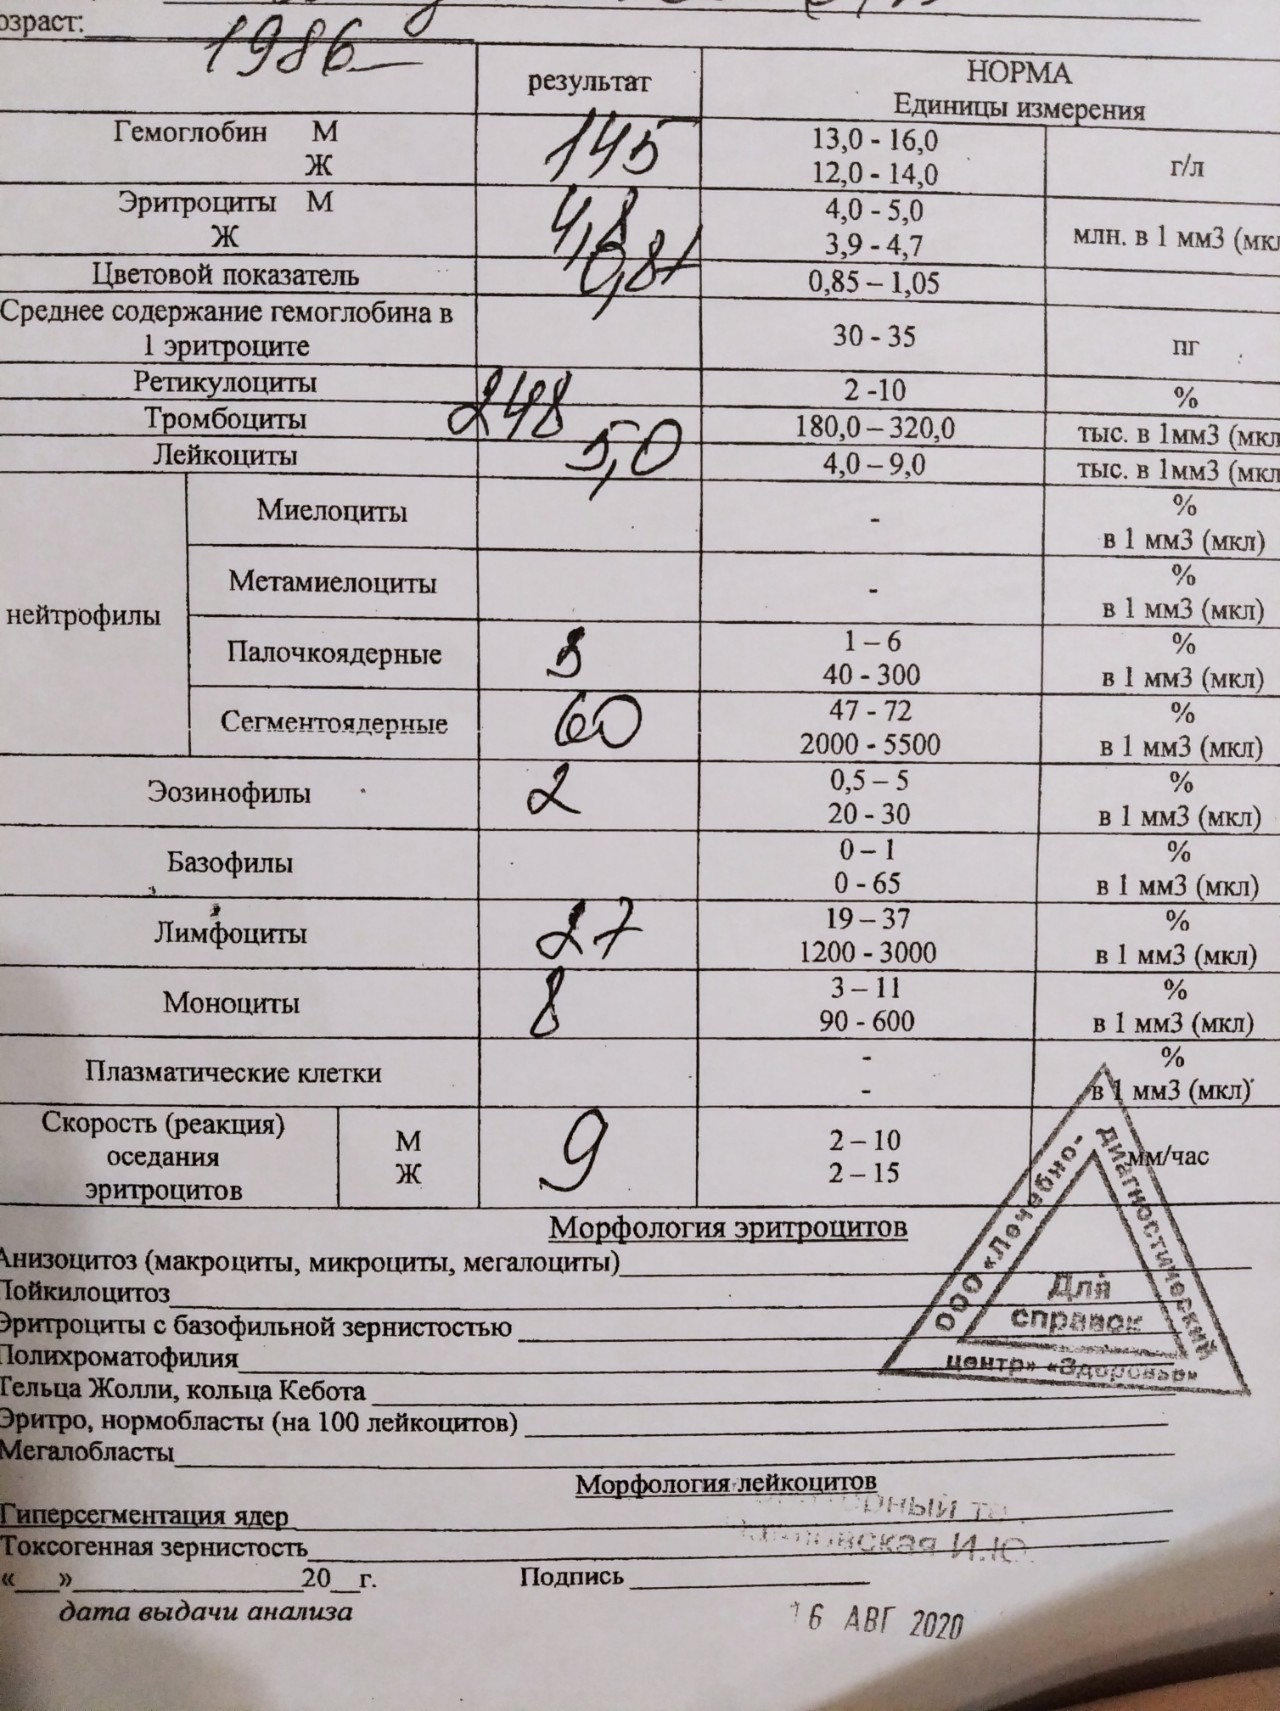 озраст:
1986
результат
НОРМА
Единицы измерения
Гемоглобин М
Ж
145
13,0 - 16,0
12,0 - 14,0
г/л
Эритроциты М
Ж
4,8
4,0 - 5,0
3,9 - 4,7
млн. в 1 мм3 (мкл
Цветовой показатель
0,85 – 1,05
Среднее содержание гемоглобина в
1 эритроците
30 - 35
пг
Ретикулоциты
2 -10
%
Тромбоциты
248
180,0 – 320,0
тыс. в 1мм3 (мкл
Лейкоциты
5,0
4,0 – 9,0
тыс. в 1мм3 (мкл
нейтрофилы
Миелоциты
-
%
в 1 мм3 (мкл)
Метамиелоциты
-
%
в 1 мм3 (мкл)
Палочкоядерные
3
1 – 6
40 - 300
%
в 1 мм3 (мкл)
Сегментоядерные
60
47 - 72
2000 - 5500
%
в 1 мм3 (мкл)
Эозинофилы
2
0,5 – 5
20 - 30
%
в 1 мм3 (мкл)
Базофилы
0 – 1
0 - 65
%
в 1 мм3 (мкл)
Лимфоциты
27
19 – 37
1200 - 3000
%
в 1 мм3 (мкл)
Моноциты
8
3 – 11
90 - 600
%
в 1 мм3 (мкл)
Плазматические клетки
-
-
%
в 1 мм3 (мкл)
Скорость (реакция)
оседания
эритроцитов
М
Ж
9
2 – 10
2 – 15
мм/час
Морфология эритроцитов
Анизоцитоз (макроциты, микроциты, мегалоциты)
Пойкилоцитоз
Эритроциты с базофильной зернистостью
Полихроматофилия
Тельца Жолли, кольца Кебота
Эритро, нормобласты (на 100 лейкоцитов)
Мегалобласты
ООО «Лечебно-
диагностический
центр» «Здоровье»
Для
справок
Морфология лейкоцитов
Гиперсегментация ядер
Токсогенная зернистость
«___»________________20__г.
Подпись
дата выдачи анализа
16 АВГ 2020